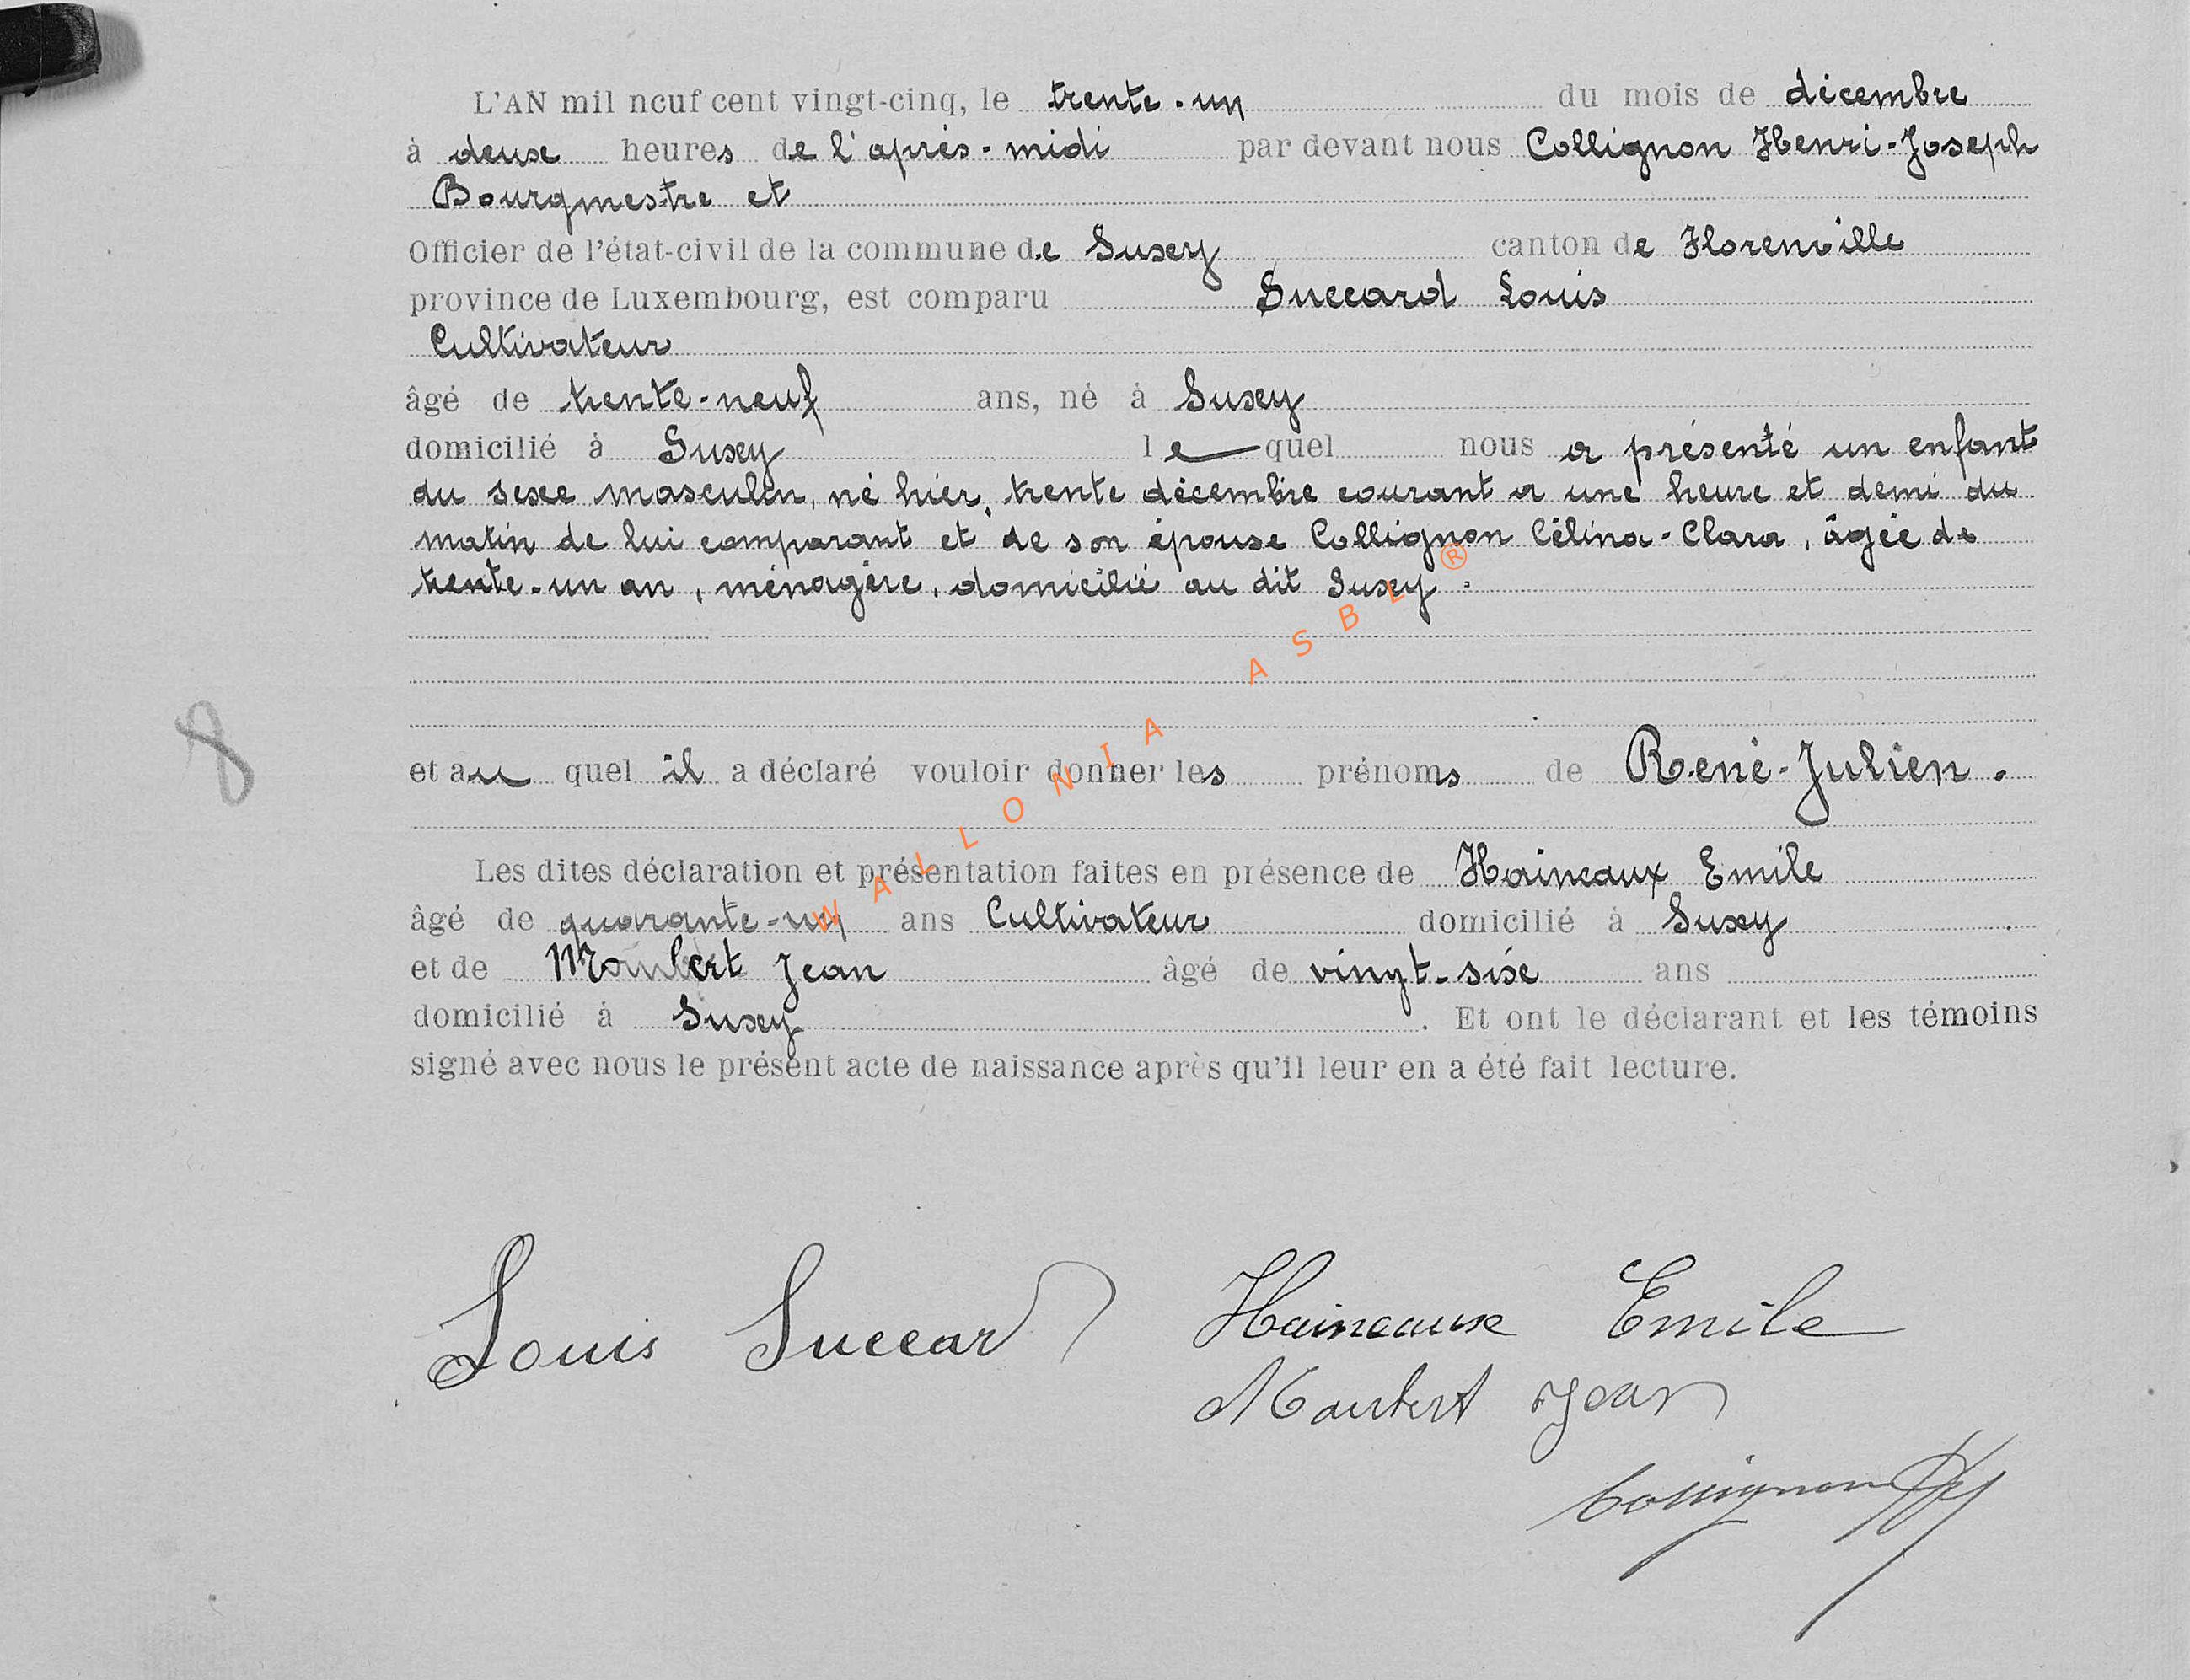 L'AN mil neuf cent vingt-cinq, le trente-un du mois de décembre
à deux heures de l'après-midi par devant nous Collignon Henri-Joseph
Bourgmestre et
Officier de l'état-civil de la commune de Suxey canton de Florenville
province de Luxembourg, est comparu Succard Louis
Cultivateur
âgé de trente-neuf ans, né à Suxy
domicilié à Suxy le quel nous a présenté un enfant
du sexe masculin, né hier, trente décembre courant a une heure et demi du
matin de lui comparant et de son épouse Collignon Célina-Clara, âgée de
trente-un an, ménagère, domicilié au dit Suxy.
et au quel il a déclaré vouloir donner les prénoms de René-Julien.
8
Les dites déclaration et présentation faites en présence de Haineaux Emile
âgé de quarante-un ans Cultivateur domicilié à Suxy
et de Maubert Jean âgé de vingt-six ans
domicilié à Suxy. Et ont le déclarant et les témoins
signé avec nous le présent acte de naissance après qu'il leur en a été fait lecture.
Louis Succard Haineaux Emile
Maubert Jean
Collignon
WALLONIA ASBL ®